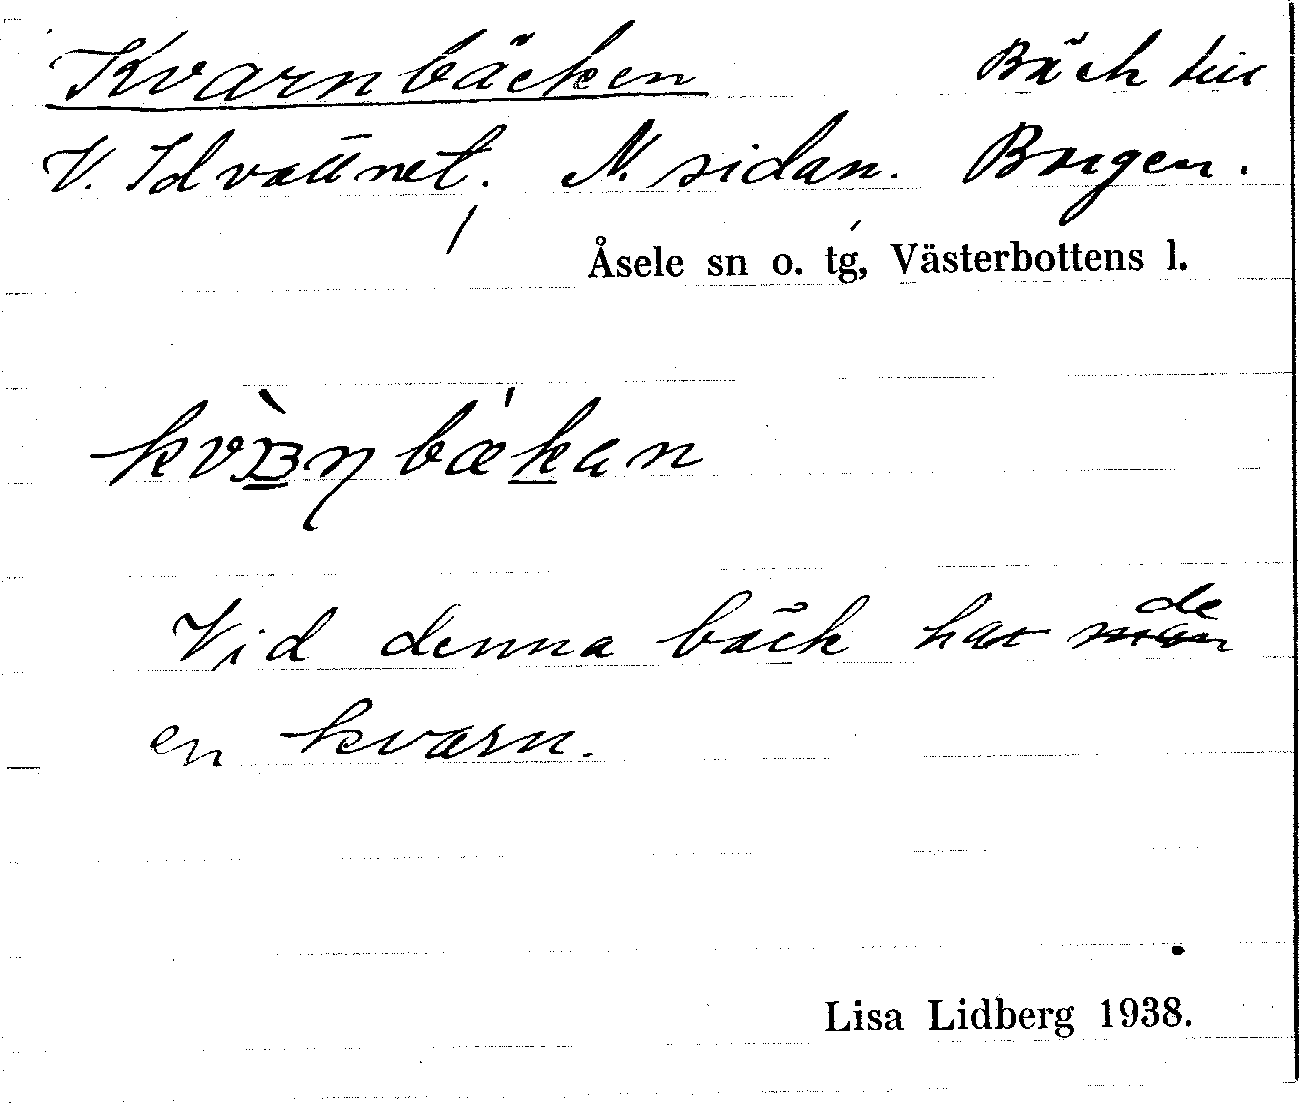 Kvarnbäcken Bäck till
V. Idvattnet, N. sidan. Borgen.
Åsele sn o. tg, Västerbottens l.
Vid denna bäck har de
en kvarn.
Lisa Lidberg 1938.